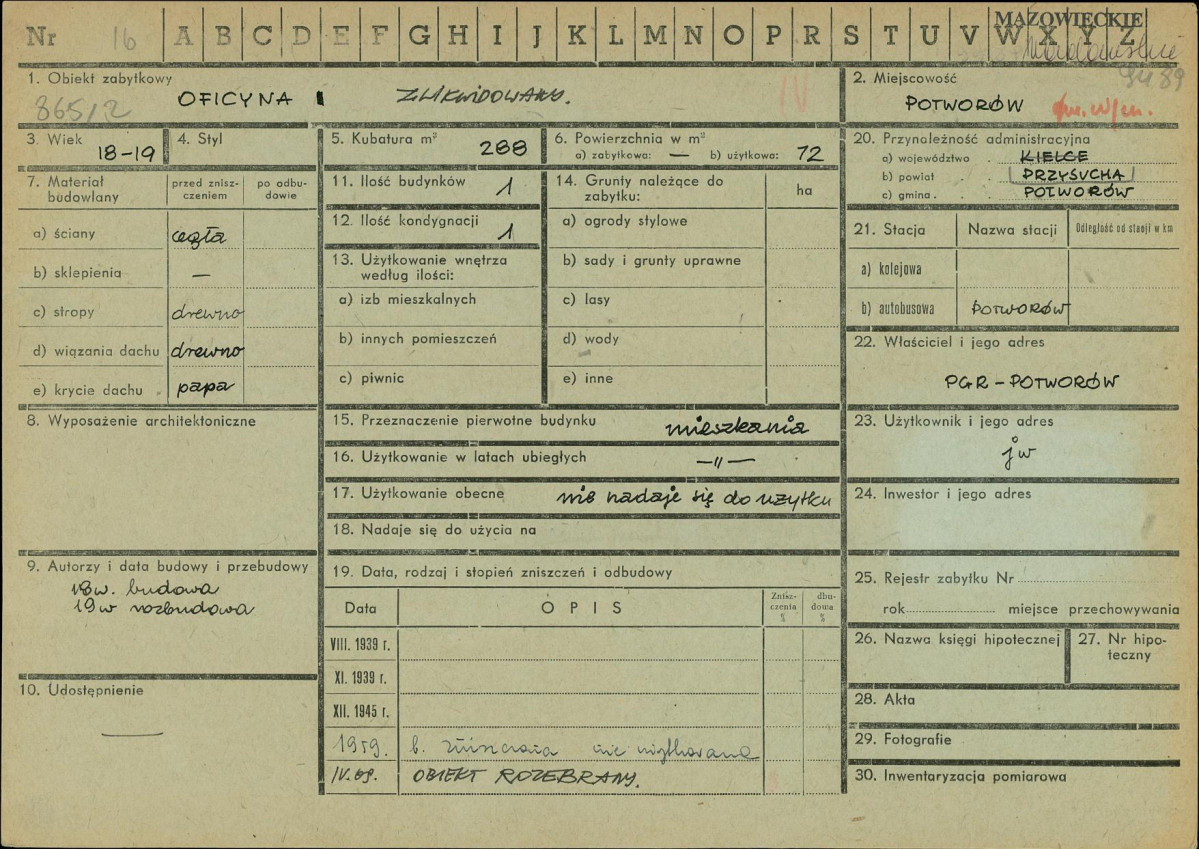 Nr 16 A B C D E F G H I J K L M N O P R S T U V W X Y Z
MAZOWIECKIE
1. Obiekt zabytkowy
865/2
OFICYNA I ZLIKWIDOWANY.
IV
2. Miejscowość
9489
POTWORÓW
3. Wiek 18-19
4. Styl
5. Kubatura m³ 288
6. Powierzchnia w m²
a) zabytkowa: — b) użytkowa: 72
7. Materiał budowlany
przed zniszczeniem
po odbudowie
a) ściany cegła
b) sklepienia —
c) stropy drewno
d) wiązania dachu drewno
e) krycie dachu papa
8. Wyposażenie architektoniczne
9. Autorzy i data budowy i przebudowy
18w. budowa
19w rozbudowa
10. Udostępnienie
—
11. Ilość budynków 1
12. Ilość kondygnacji 1
13. Użytkowanie wnętrza
według ilości:
a) izb mieszkalnych
b) innych pomieszczeń
c) piwnic
14. Grunty należące do
zabytku:
ha
a) ogrody stylowe
b) sady i grunty uprawne
c) lasy
d) wody
e) inne
15. Przeznaczenie pierwotne budynku mieszkania
16. Użytkowanie w latach ubiegłych —„—
17. Użytkowanie obecne nie nadaje się do użytku
18. Nadaje się do użycia na
19. Data, rodzaj i stopień zniszczeń i odbudowy
Data OPIS Zniszczenia % dbudowa %
VIII. 1939 r.
XI. 1939 r.
XII. 1945 r.
1959. b. zniszczona nie użytkowana
IV. 69. OBIEKT ROZEBRANY.
20. Przynależność administracyjna
a) województwo KIELCE
b) powiat PRZYSUCHA
c) gmina POTWORÓW
21. Stacja Nazwa stacji Odległość od stacji w km
a) kolejowa
b) autobusowa POTWORÓW
22. Właściciel i jego adres
PGR-POTWORÓW
23. Użytkownik i jego adres
jw
24. Inwestor i jego adres
25. Rejestr zabytku Nr
rok miejsce przechowywania
26. Nazwa księgi hipotecznej
27. Nr hipoteczny
28. Akta
29. Fotografie
30. Inwentaryzacja pomiarowa